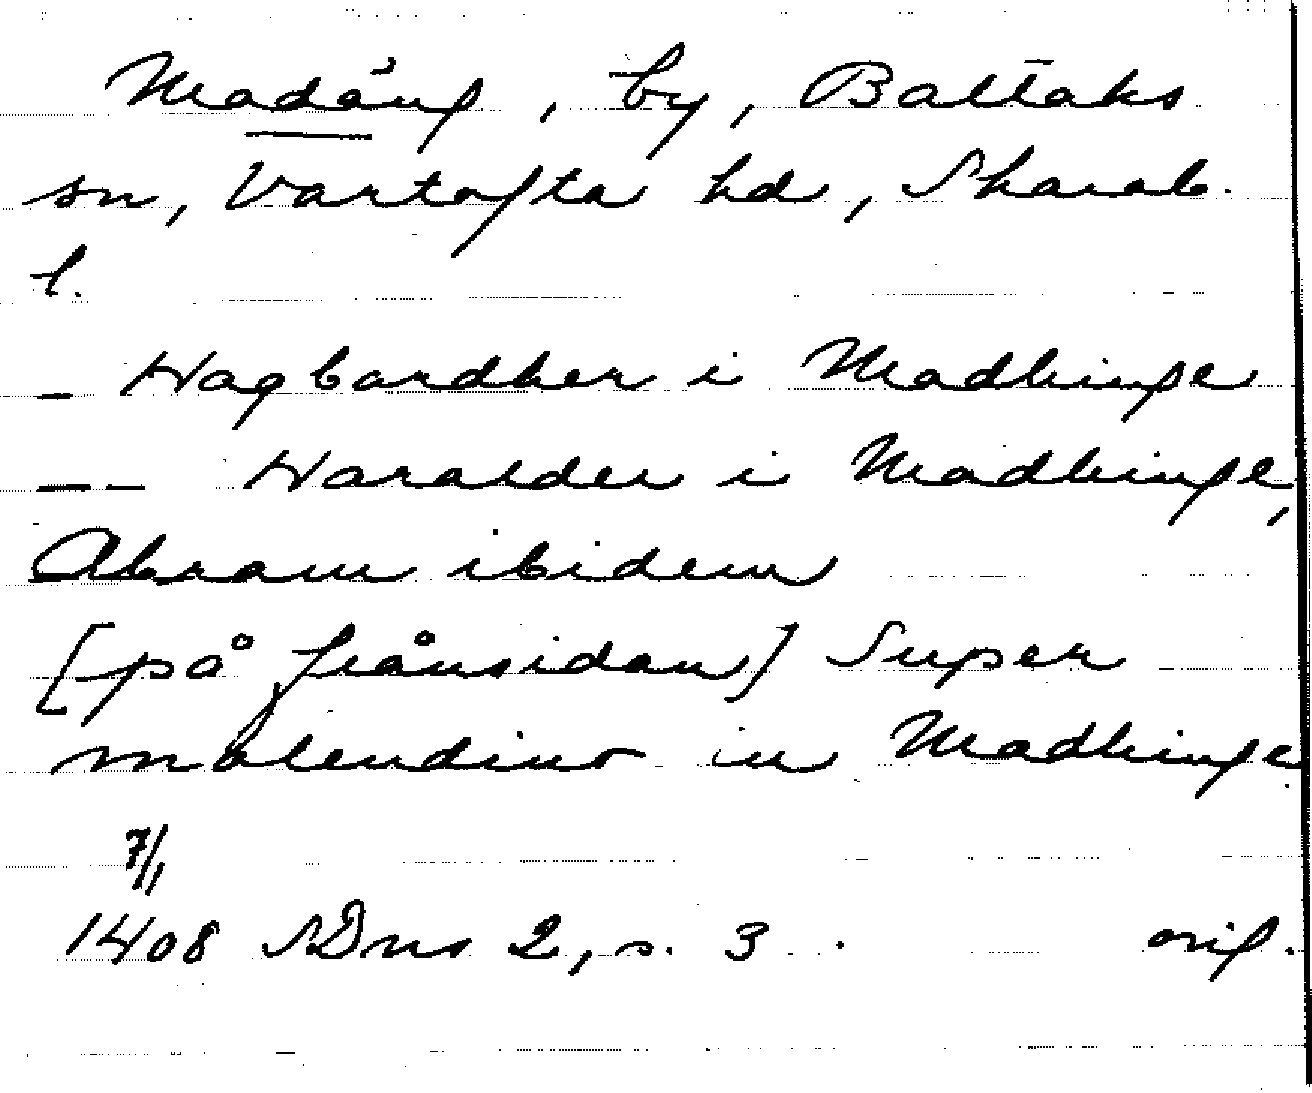 Madäng, by, Baltaks
sn, Vartofta hd, Skarab.
l.
_ Hagbardher i Madhinge
_ _ Haralder i Madhinge,
Abram ibidem
[på frånsidan] Super
molendino in Madhinge
7/1
1408 SDns 2, s. 3 . orig.